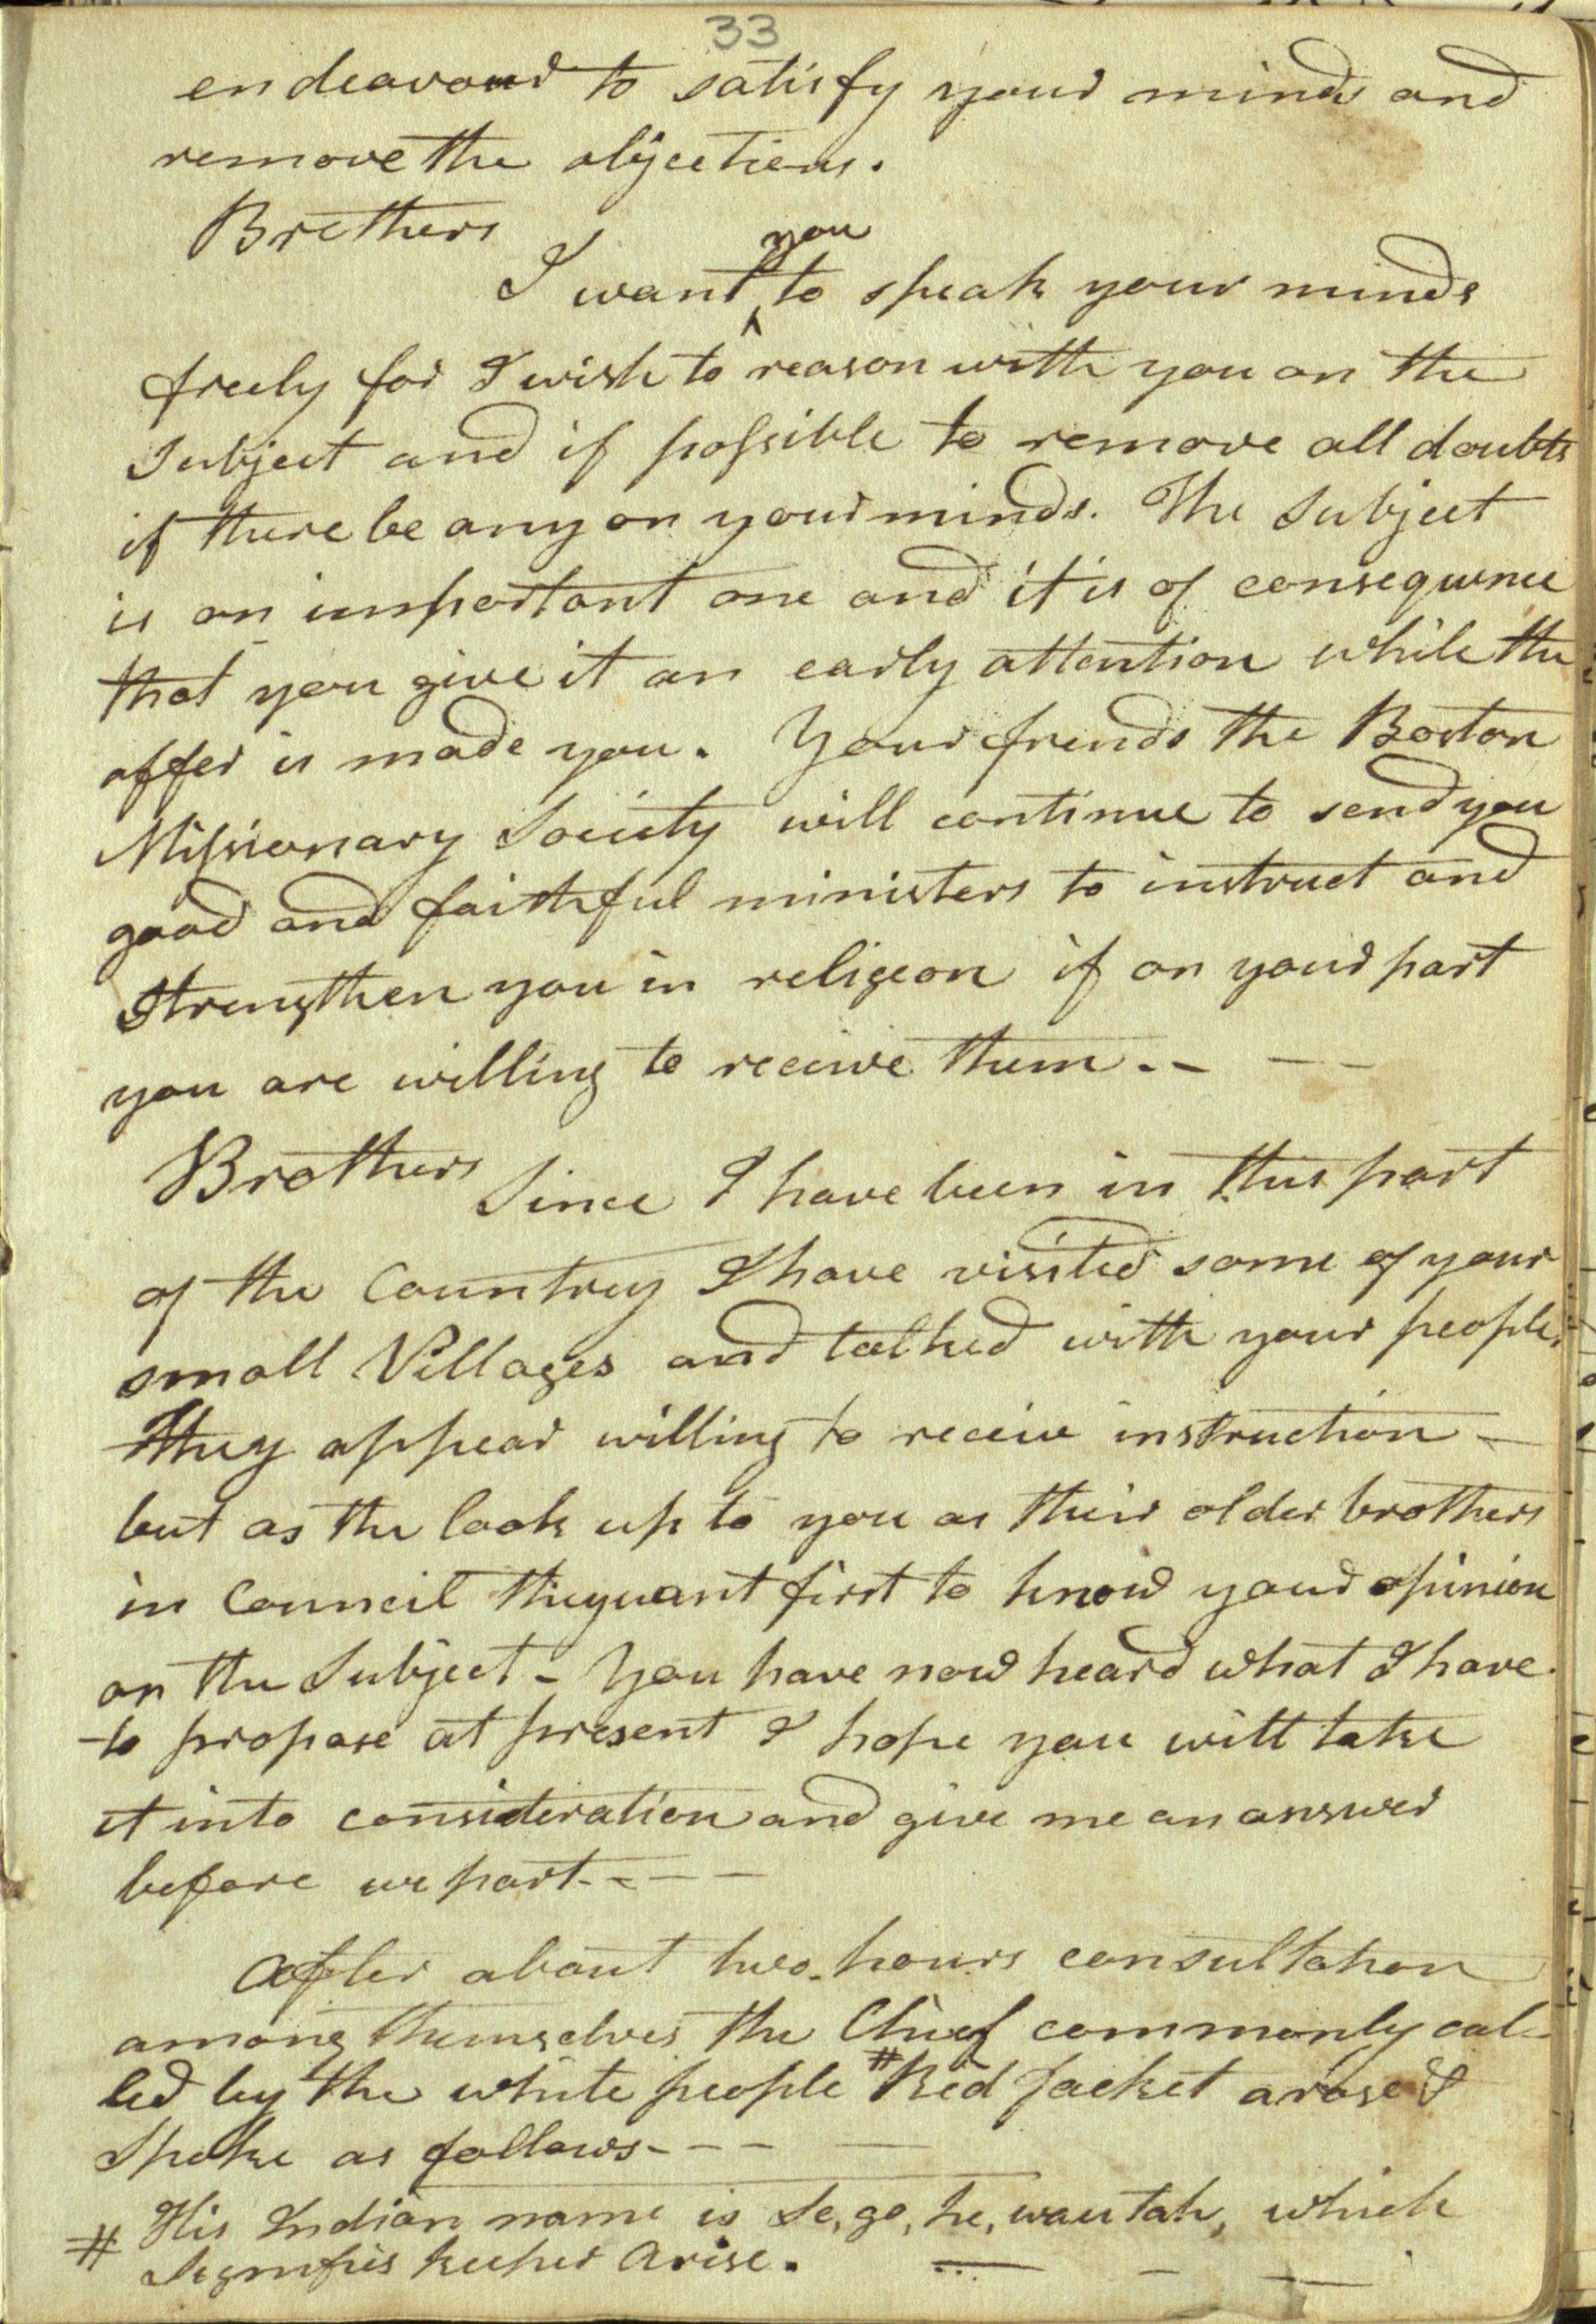 33
endeavour to satisfy your minds and
remove the objections.
Brothers
I want you to speak your minds
freely for I wish to reason with you on the
Subject and if possible to remove all doubts
if there be any on your minds. The Subject
is an important one and it is of consequence
that you give it an early attention while the
offer is made you. Your frends the Boston
Missionary Society will continue to send you
good and faithful ministers to instruct and
Strengthen you in religeon if on your part
you are willing to receive them. - - -
Brothers Since I have been in this part
of the Countrey I have visited some of your
small Villages and talked with your people,
They appear willing to receive instruction -
but as the look up to you as their older brothers
in Council they want first to know your opinion
on the Subject - You have now heard what I have
to propose at present I hope you will take
it into consideration and give me an answer
before we part. - - -
After about two hours consultation
among themselves the Chief commonly cal-
led by the white people # Red Jacket arose &
Spoke as follows - - - -
# His Indian name is Se, go, he, wau tah, which
Signifies keeper Arise. - - -